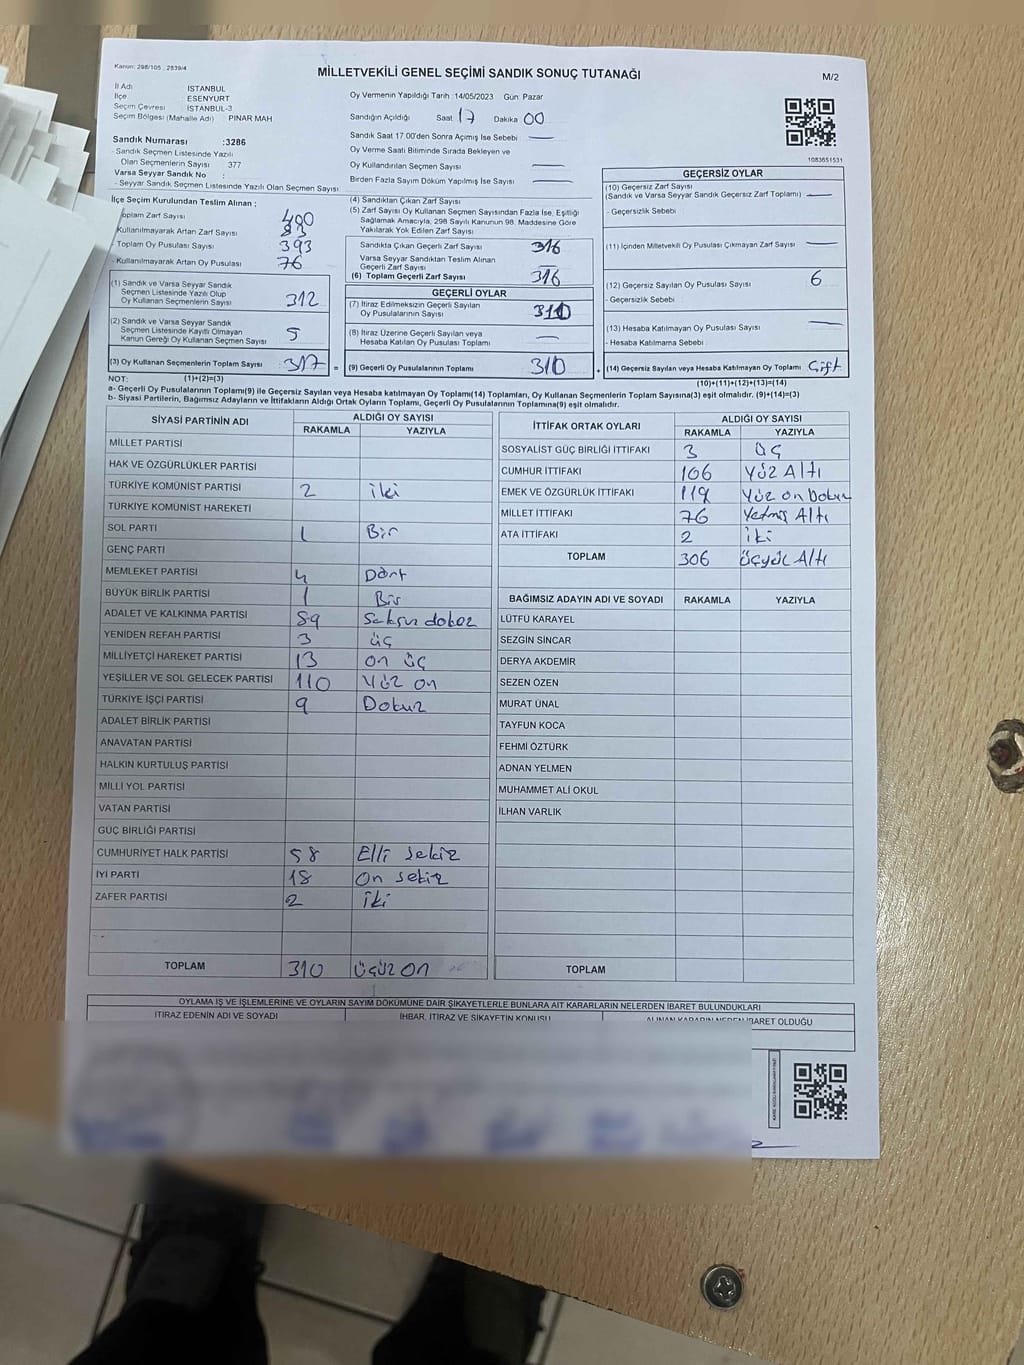 Kanun: 298/105 , 2839/4
MİLLETVEKİLİ GENEL SEÇİMİ SANDIK SONUÇ TUTANAĞI
M/2
İl Adı İSTANBUL
İlçe ESENYURT
Seçim Çevresi İSTANBUL-3
Seçim Bölgesi (Mahalle Adı) PINAR MAH
Sandık Numarası :3286
- Sandık Seçmen Listesinde Yazılı
Olan Seçmenlerin Sayısı 377
Varsa Seyyar Sandık No :
- Seyyar Sandık Seçmen Listesinde Yazılı Olan Seçmen Sayısı
Oy Vermenin Yapıldığı Tarih :14/05/2023 Gün: Pazar
Sandığın Açıldığı Saat 17 Dakika 00
Sandık Saat 17.00'den Sonra Açımış İse Sebebi —
Oy Verme Saati Bitiminde Sırada Bekleyen ve
Oy Kullandırılan Seçmen Sayısı —
Birden Fazla Sayım Döküm Yapılmış İse Sayısı —
1083651531
İlçe Seçim Kurulundan Teslim Alınan :
Toplam Zarf Sayısı 400
Kullanılmayarak Artan Zarf Sayısı 83
- Toplam Oy Pusulası Sayısı 393
- Kullanılmayarak Artan Oy Pusulası 76
(1) Sandık ve Varsa Seyyar Sandık
Seçmen Listesinde Yazılı Olup
Oy Kullanan Seçmenlerin Sayısı 312
(2) Sandık ve Varsa Seyyar Sandık
Seçmen Listesinde Kayıtlı Olmayan
Kanun Gereği Oy Kullanan Seçmen Sayısı 5
(3) Oy Kullanan Seçmenlerin Toplam Sayısı 317 =
(4) Sandıktan Çıkan Zarf Sayısı
(5) Zarf Sayısı Oy Kullanan Seçmen Sayısından Fazla İse, Eşitliği
Sağlamak Amacıyla; 298 Sayılı Kanunun 98. Maddesine Göre
Yakılarak Yok Edilen Zarf Sayısı
Sandıkta Çıkan Geçerli Zarf Sayısı 316
Varsa Seyyar Sandıktan Teslim Alınan
Geçerli Zarf Sayısı —
(6) Toplam Geçerli Zarf Sayısı 316
GEÇERLİ OYLAR
(7) İtiraz Edilmeksizin Geçerli Sayılan
Oy Pusulalarının Sayısı 310
(8) İtiraz Üzerine Geçerli Sayılan veya
Hesaba Katılan Oy Pusulası Toplamı —
(9) Geçerli Oy Pusulalarının Toplamı 310 +
GEÇERSİZ OYLAR
(10) Geçersiz Zarf Sayısı
(Sandık ve Varsa Seyyar Sandık Geçersiz Zarf Toplamı) —
- Geçersizlik Sebebi
(11) İçinden Milletvekili Oy Pusulası Çıkmayan Zarf Sayısı —
(12) Geçersiz Sayılan Oy Pusulası Sayısı 6
- Geçersizlik Sebebi
(13) Hesaba Katılmayan Oy Pusulası Sayısı —
- Hesaba Katılmama Sebebi
(14) Geçersiz Sayılan veya Hesaba Katılmayan Oy Toplamı Çift
NOT: (1)+(2)=(3)
(10)+(11)+(12)+(13)=(14)
a- Geçerli Oy Pusulalarının Toplamı(9) ile Geçersiz Sayılan veya Hesaba katılmayan Oy Toplamı(14) Toplamları, Oy Kullanan Seçmenlerin Toplam Sayısına(3) eşit olmalıdır. (9)+(14)=(3)
b- Siyasi Partilerin, Bağımsız Adayların ve İttifakların Aldığı Ortak Oyların Toplamı, Geçerli Oy Pusulalarının Toplamına(9) eşit olmalıdır.
SİYASİ PARTİNİN ADI ALDIĞI OY SAYISI
RAKAMLA YAZIYLA
MİLLET PARTİSİ
HAK VE ÖZGÜRLÜKLER PARTİSİ
TÜRKİYE KOMÜNİST PARTİSİ 2 iki
TÜRKİYE KOMÜNİST HAREKETİ
SOL PARTİ 1 Bir
GENÇ PARTİ
MEMLEKET PARTİSİ 4 Dört
BÜYÜK BİRLİK PARTİSİ 1 Bir
ADALET VE KALKINMA PARTİSİ 89 Seksen dokuz
YENİDEN REFAH PARTİSİ 3 üç
MİLLİYETÇİ HAREKET PARTİSİ 13 on üç
YEŞİLLER VE SOL GELECEK PARTİSİ 110 Yüz on
TÜRKİYE İŞÇİ PARTİSİ 9 Dokuz
ADALET BİRLİK PARTİSİ
ANAVATAN PARTİSİ
HALKIN KURTULUŞ PARTİSİ
MİLLİ YOL PARTİSİ
VATAN PARTİSİ
GÜÇ BİRLİĞİ PARTİSİ
CUMHURİYET HALK PARTİSİ 58 Elli sekiz
İYİ PARTİ 18 On sekiz
ZAFER PARTİSİ 2 İki
TOPLAM 310 üçüz on
İTTİFAK ORTAK OYLARI ALDIĞI OY SAYISI
RAKAMLA YAZIYLA
SOSYALİST GÜÇ BİRLİĞİ İTTİFAKI 3 üç
CUMHUR İTTİFAKI 106 Yüz Altı
EMEK VE ÖZGÜRLÜK İTTİFAKI 119 Yüz on Dokuz
MİLLET İTTİFAKI 76 Yetmiş Altı
ATA İTTİFAKI 2 iki
TOPLAM 306 üçyüz Altı
BAĞIMSIZ ADAYIN ADI VE SOYADI RAKAMLA YAZIYLA
LÜTFÜ KARAYEL
SEZGİN SİNCAR
DERYA AKDEMİR
SEZEN ÖZEN
MURAT ÜNAL
TAYFUN KOCA
FEHMİ ÖZTÜRK
ADNAN YELMEN
MUHAMMET ALİ OKUL
İLHAN VARLIK
TOPLAM
OYLAMA İŞ VE İŞLEMLERİNE VE OYLARIN SAYIM DÖKÜMÜNE DAİR ŞİKAYETLERLE BUNLARA AİT KARARLARIN NELERDEN İBARET BULUNDUKLARI
İTİRAZ EDENİN ADI VE SOYADI İHBAR, İTİRAZ VE ŞİKAYETİN KONUSU ALINAN KARARIN NEDEN İBARET OLDUĞU